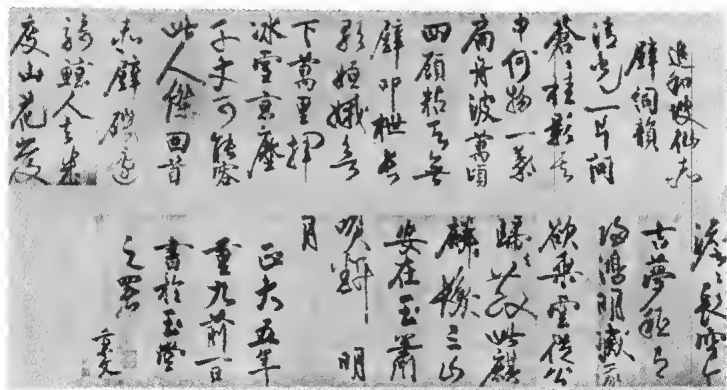 追和坡仙赤
壁詞韻
清光一片問
蒼蒼桂影其
中何物一葉
扁舟波萬頃
四顧粘天無
壁叩枻長
歌姮娥欲
下萬里揮
冰雪京塵
千丈可能容
此人傑回首
赤壁磯邊
騎鯨人去幾
度山花發
澹澹長空今
古夢秪有
歸鴻明滅我
欲乘雲從公
歸去散此麒
麟髮三山
安在玉簫
吹斷明
月
正大五年
重九前一日
書於玉堂
之署 秉文